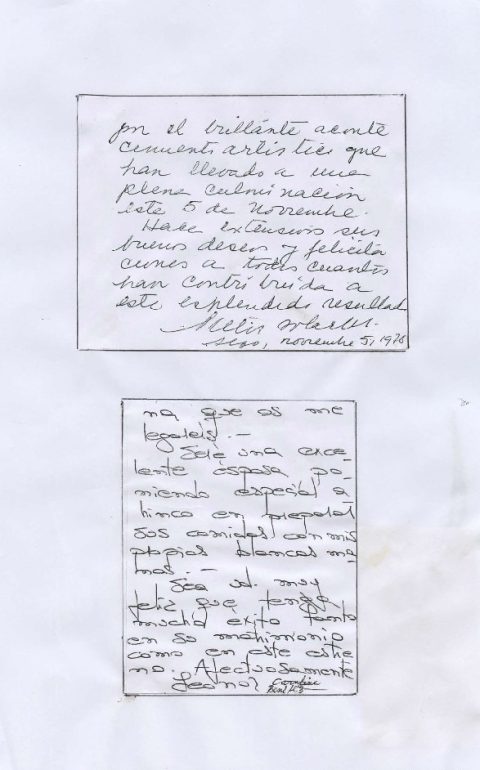 por el brillante aconte
cimiento artistico que
han llevado a una
plena culminación
este 5 de Noviembre.
Hace extensivos sus
buenos deseos y felicita
ciones a todos cuantos
han contribuido a
este esplendido resultado
Sgo, noviembre 5, 1976
na que os me
legaleis. -
Seré una exce-
lente esposa po-
niendo especial a-
hinco en preparar
sus comidas con mis
propias blancas ma-
nos. -
Sea ud. muy
feliz que tenga
mucho éxito tanto
en su matrimonio
como en este estre
no. Afectuosamente
Leonor